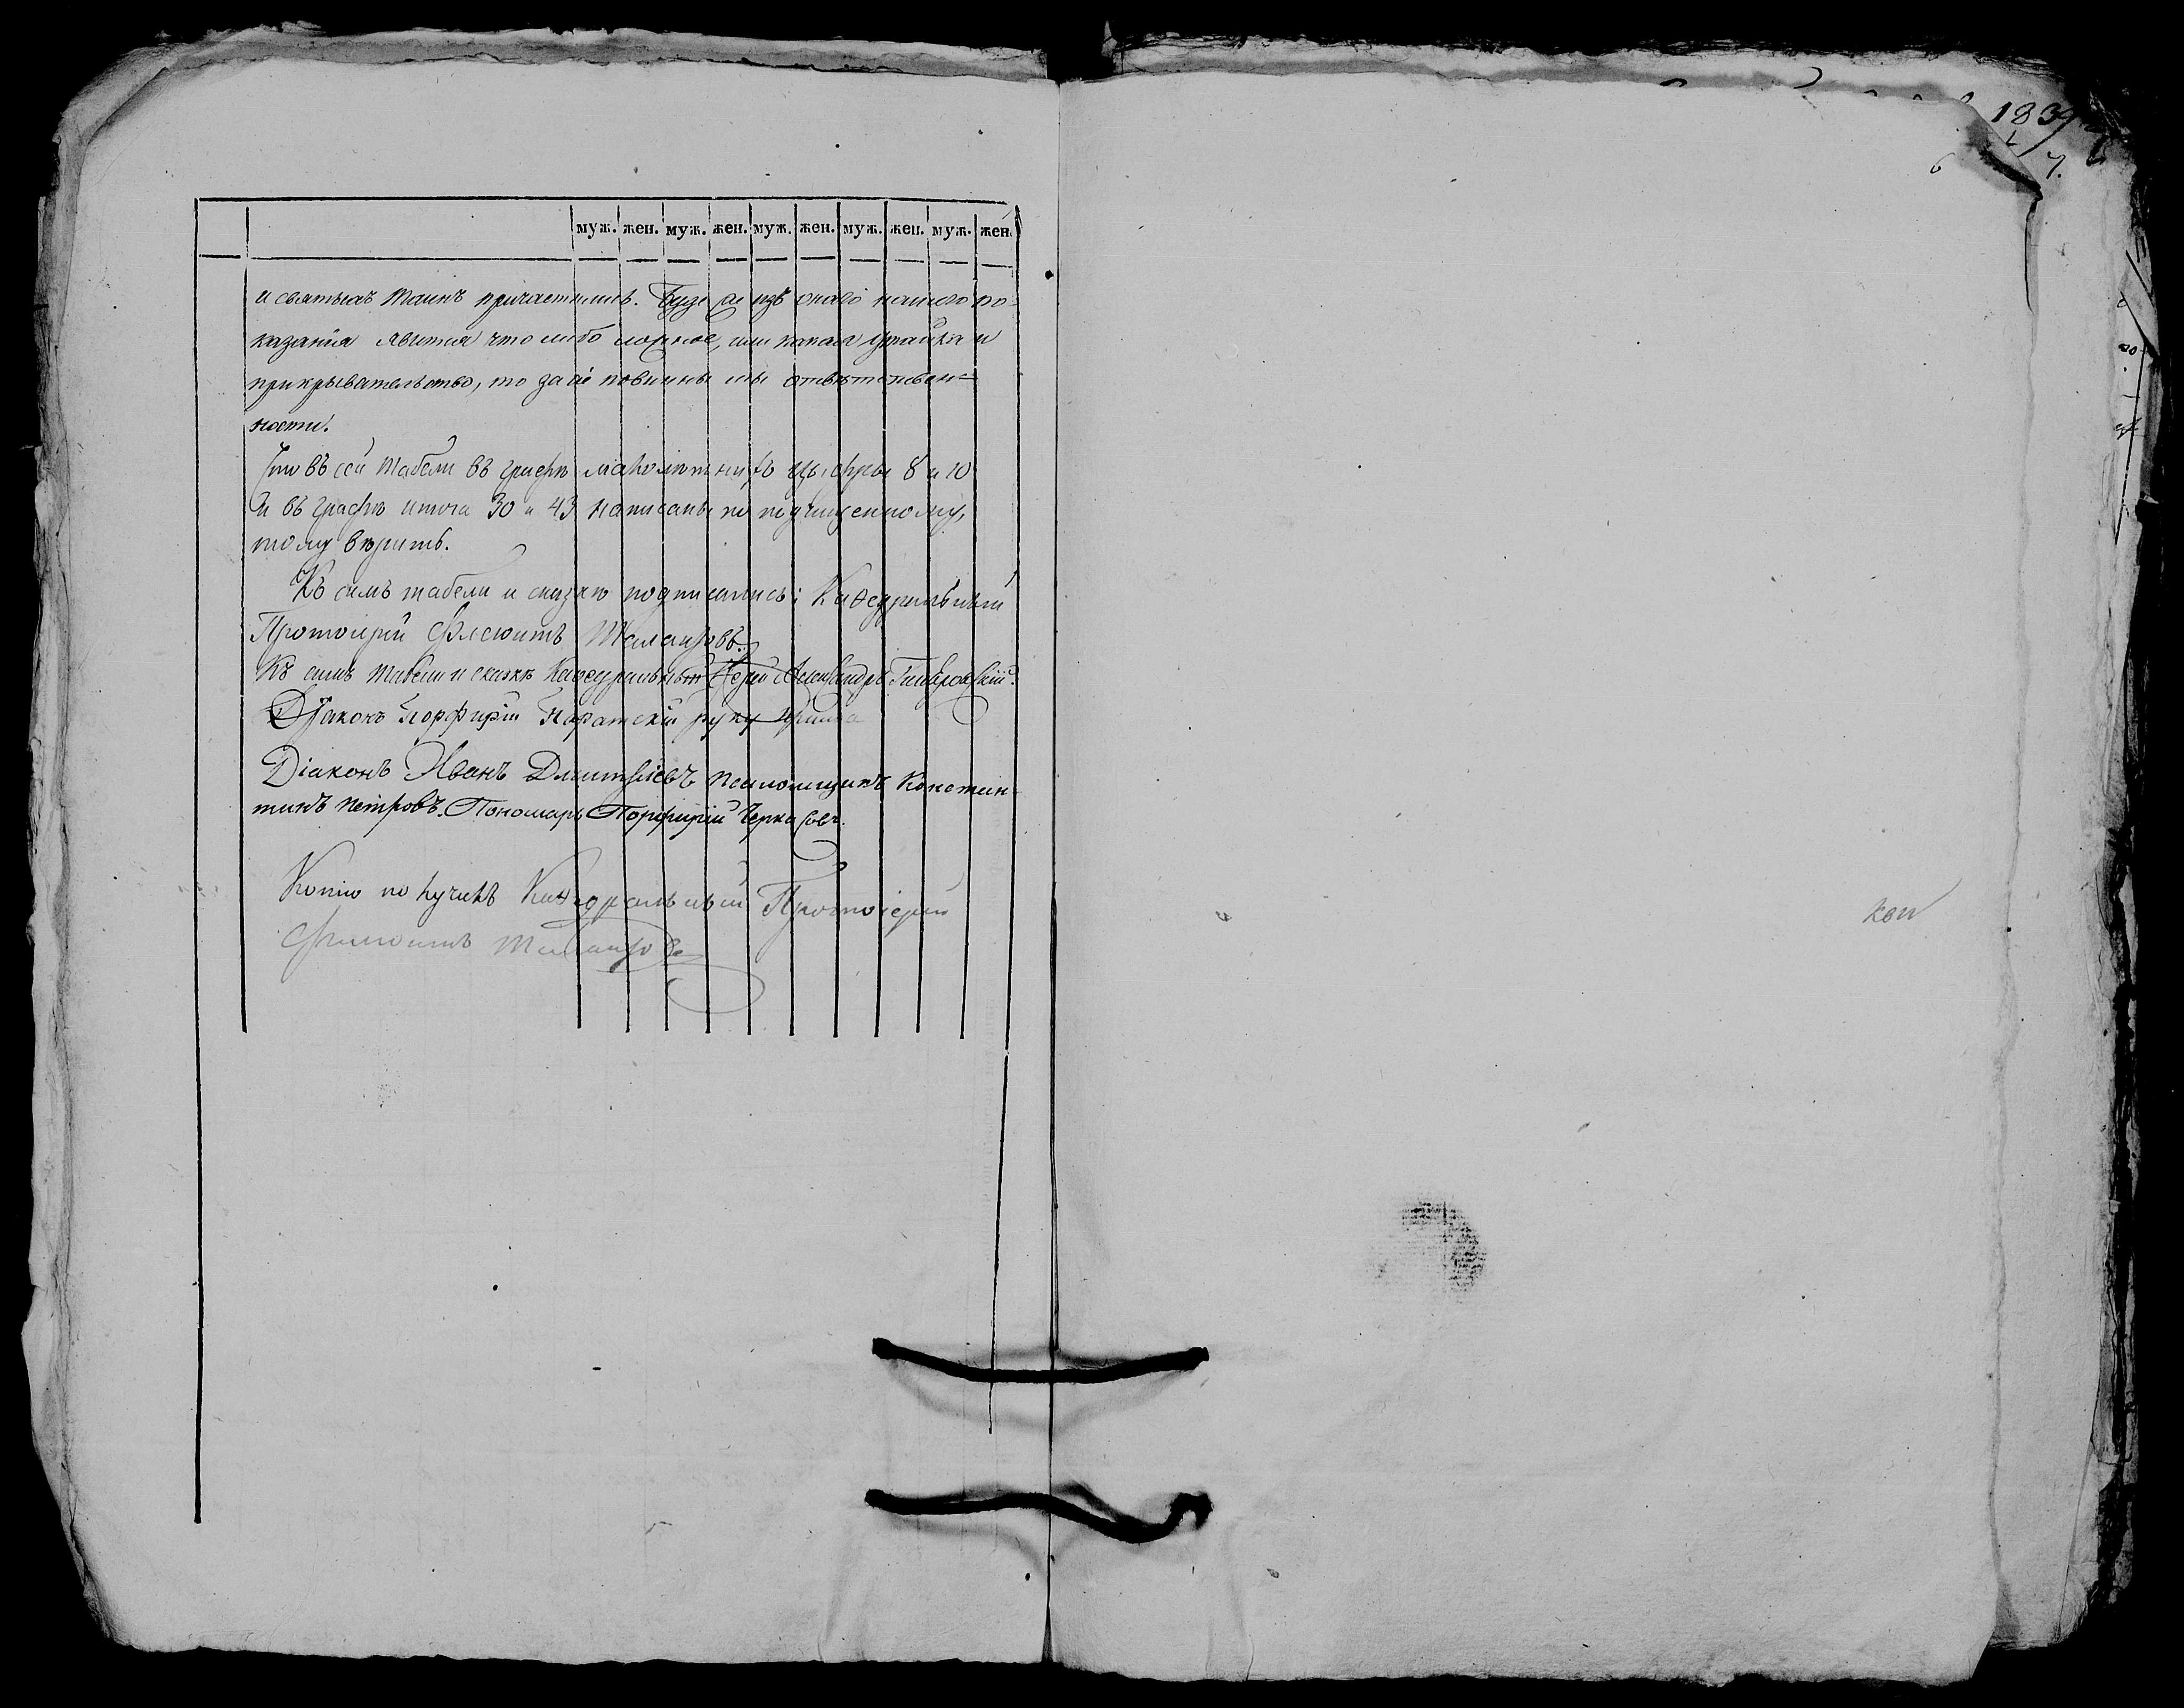 муж. жен. муж. жен. муж. жен. муж. жен. муж. жен.
и святыхъ таинъ причастились. Буде же изъ онаго нашего по-
казанія явится что либо ложное, или какая утайка и
прикрывательство, то за сіе повинны мы отвѣтствен=
ности.
Что въ сей табели въ графѣ малолѣтнихъ цыфры 8 и 10
и въ графѣ итога 30 и 43 написаны по подчищенному,
тому вѣрить.
Къ симъ табели и сказкѣ подписались: Каѳедральный
Протоіерей
Къ симъ табели и сказкѣ Каѳедральный Іерей Александръ
Діаконъ Порфирій руку
Діаконъ Иванъ Дмитріевъ псаломщикъ Констан
тинъ Петровъ. Пономарь Порфирій Черкасовъ.
Копію получилъ Каѳедральный Протоіерей
183
6
7.